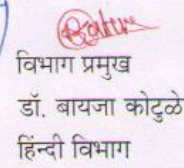 विभाग प्रमुख
डॉ. बायजा कोटुळे
हिन्दी विभाग